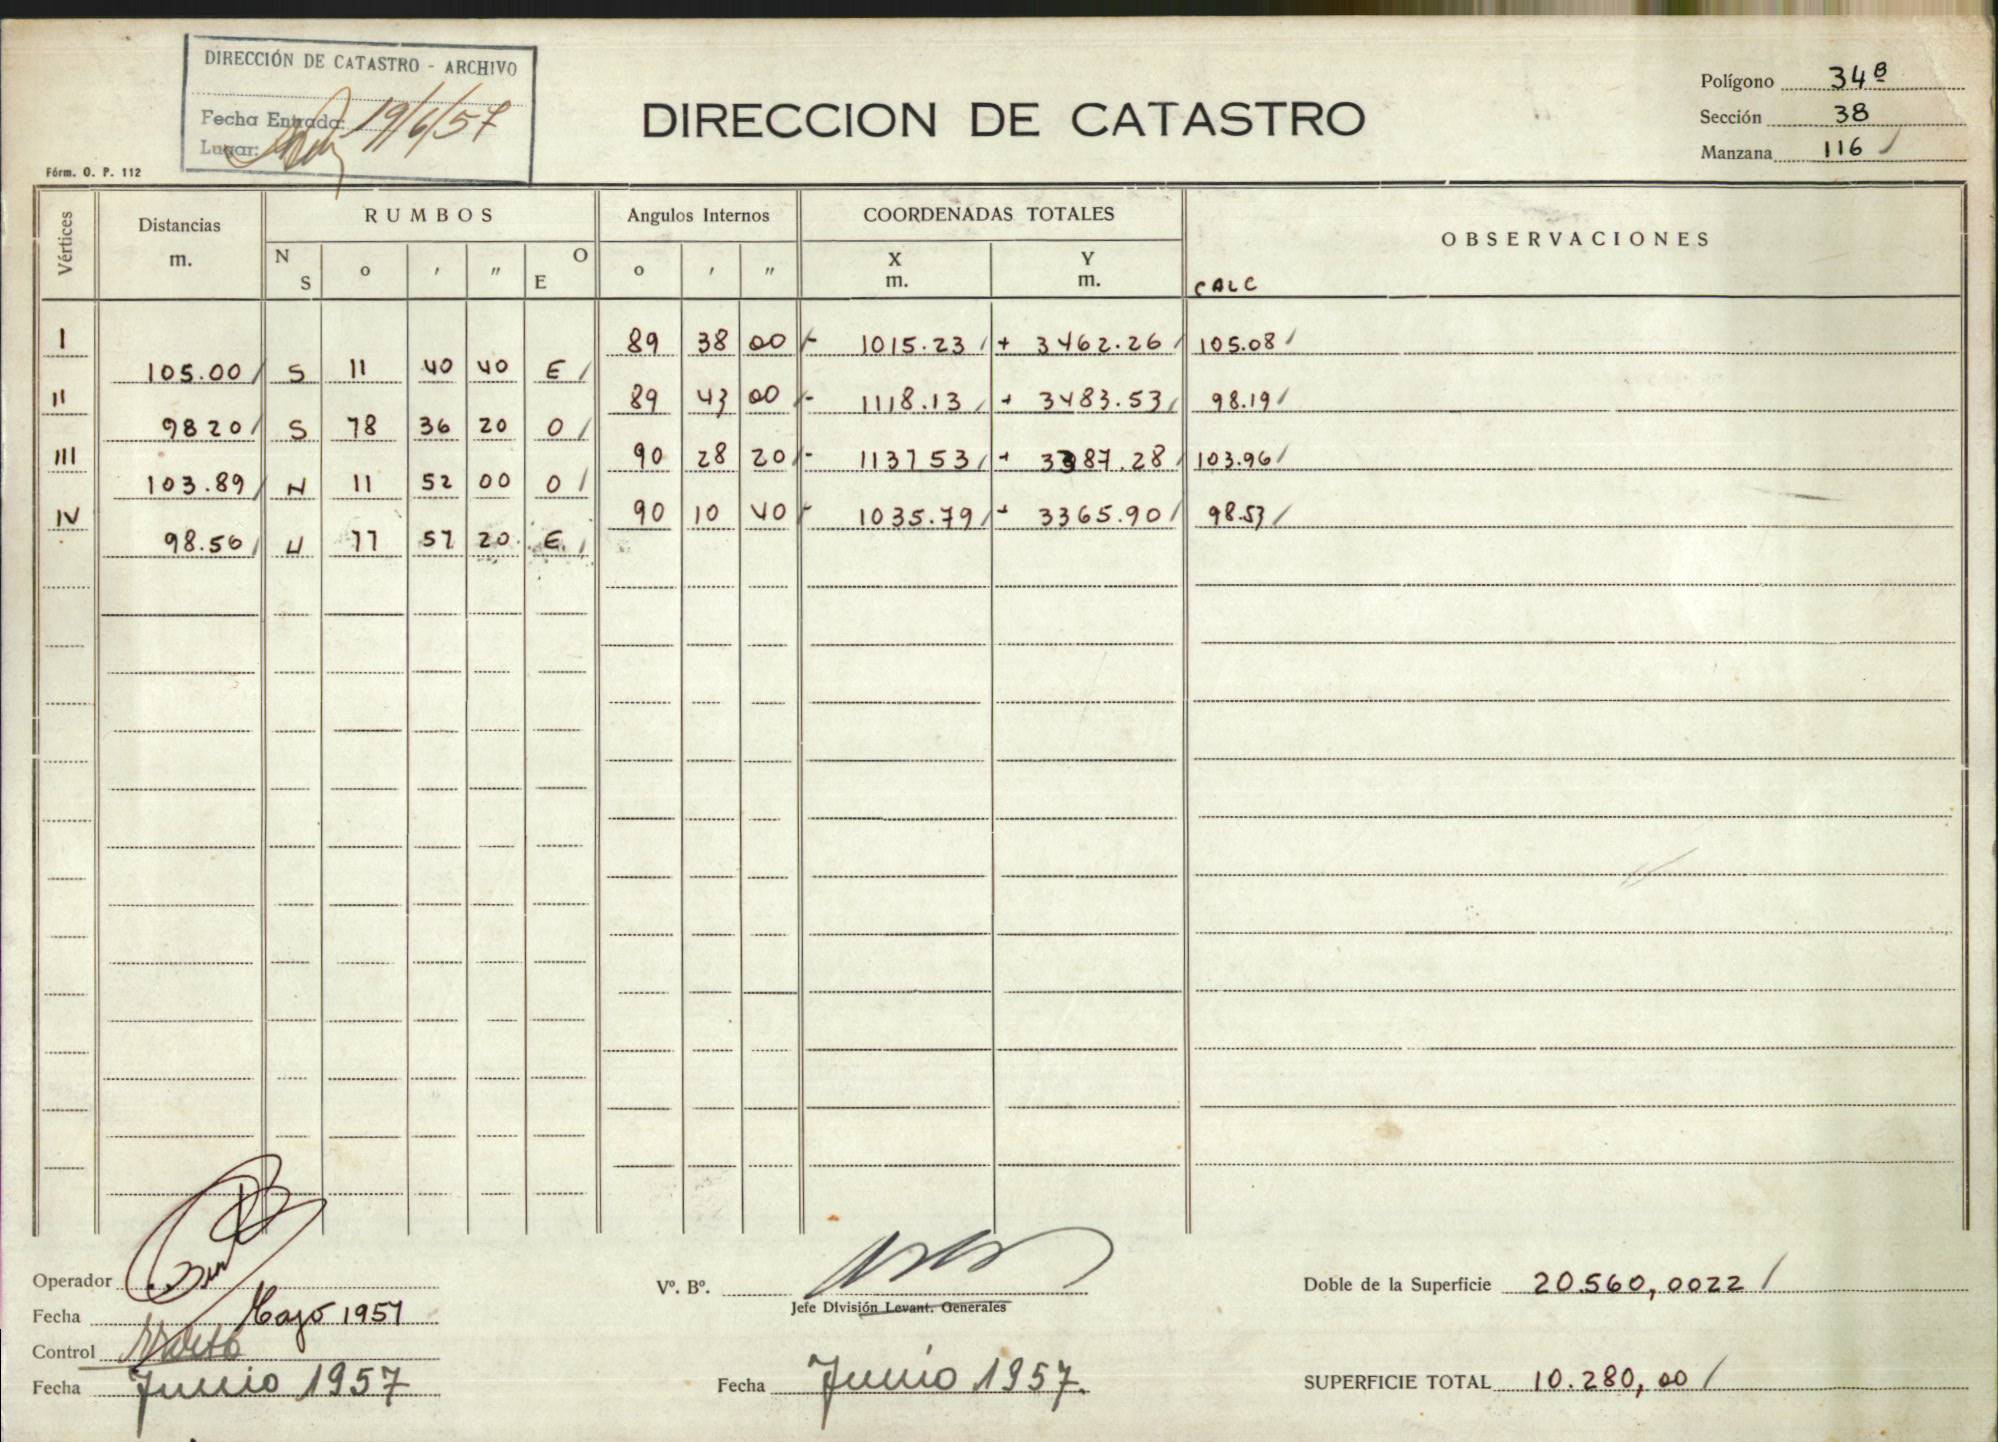 DIRECCIÓN DE CATASTRO - ARCHIVO
Fecha Entrada: 19/6/57
Lugar:
Fórm. O. P. 112
DIRECCION DE CATASTRO
Polígono 34ª
Sección 38
Manzana 116 /
Vértices Distancias m. RUMBOS Angulos Internos COORDENADAS TOTALES OBSERVACIONES
N S o ' " E O o ' " X m. Y m. CALC
I 89 38 00 - 1015.23 / + 3462.26 / 105.08 /
105.00 / S 11 40 40 E /
II 89 43 00 - 1118.13 / + 3483.53 / 98.19 /
98 20 / S 78 36 20 O /
III 90 28 20 - 1137 53 / + 3387.28 / 103.96 /
103.89 / N 11 52 00 O /
IV 90 10 40 - 1035.79 / + 3365.90 / 98.53 /
98.56 / N 77 57 20 E /
Operador
Fecha Mayo 1957
Control
Fecha Junio 1957
Vº. Bº.
Jefe División Levant. Generales
Fecha Junio 1957.
Doble de la Superficie 20.560,0022 /
SUPERFICIE TOTAL 10.280,00 /